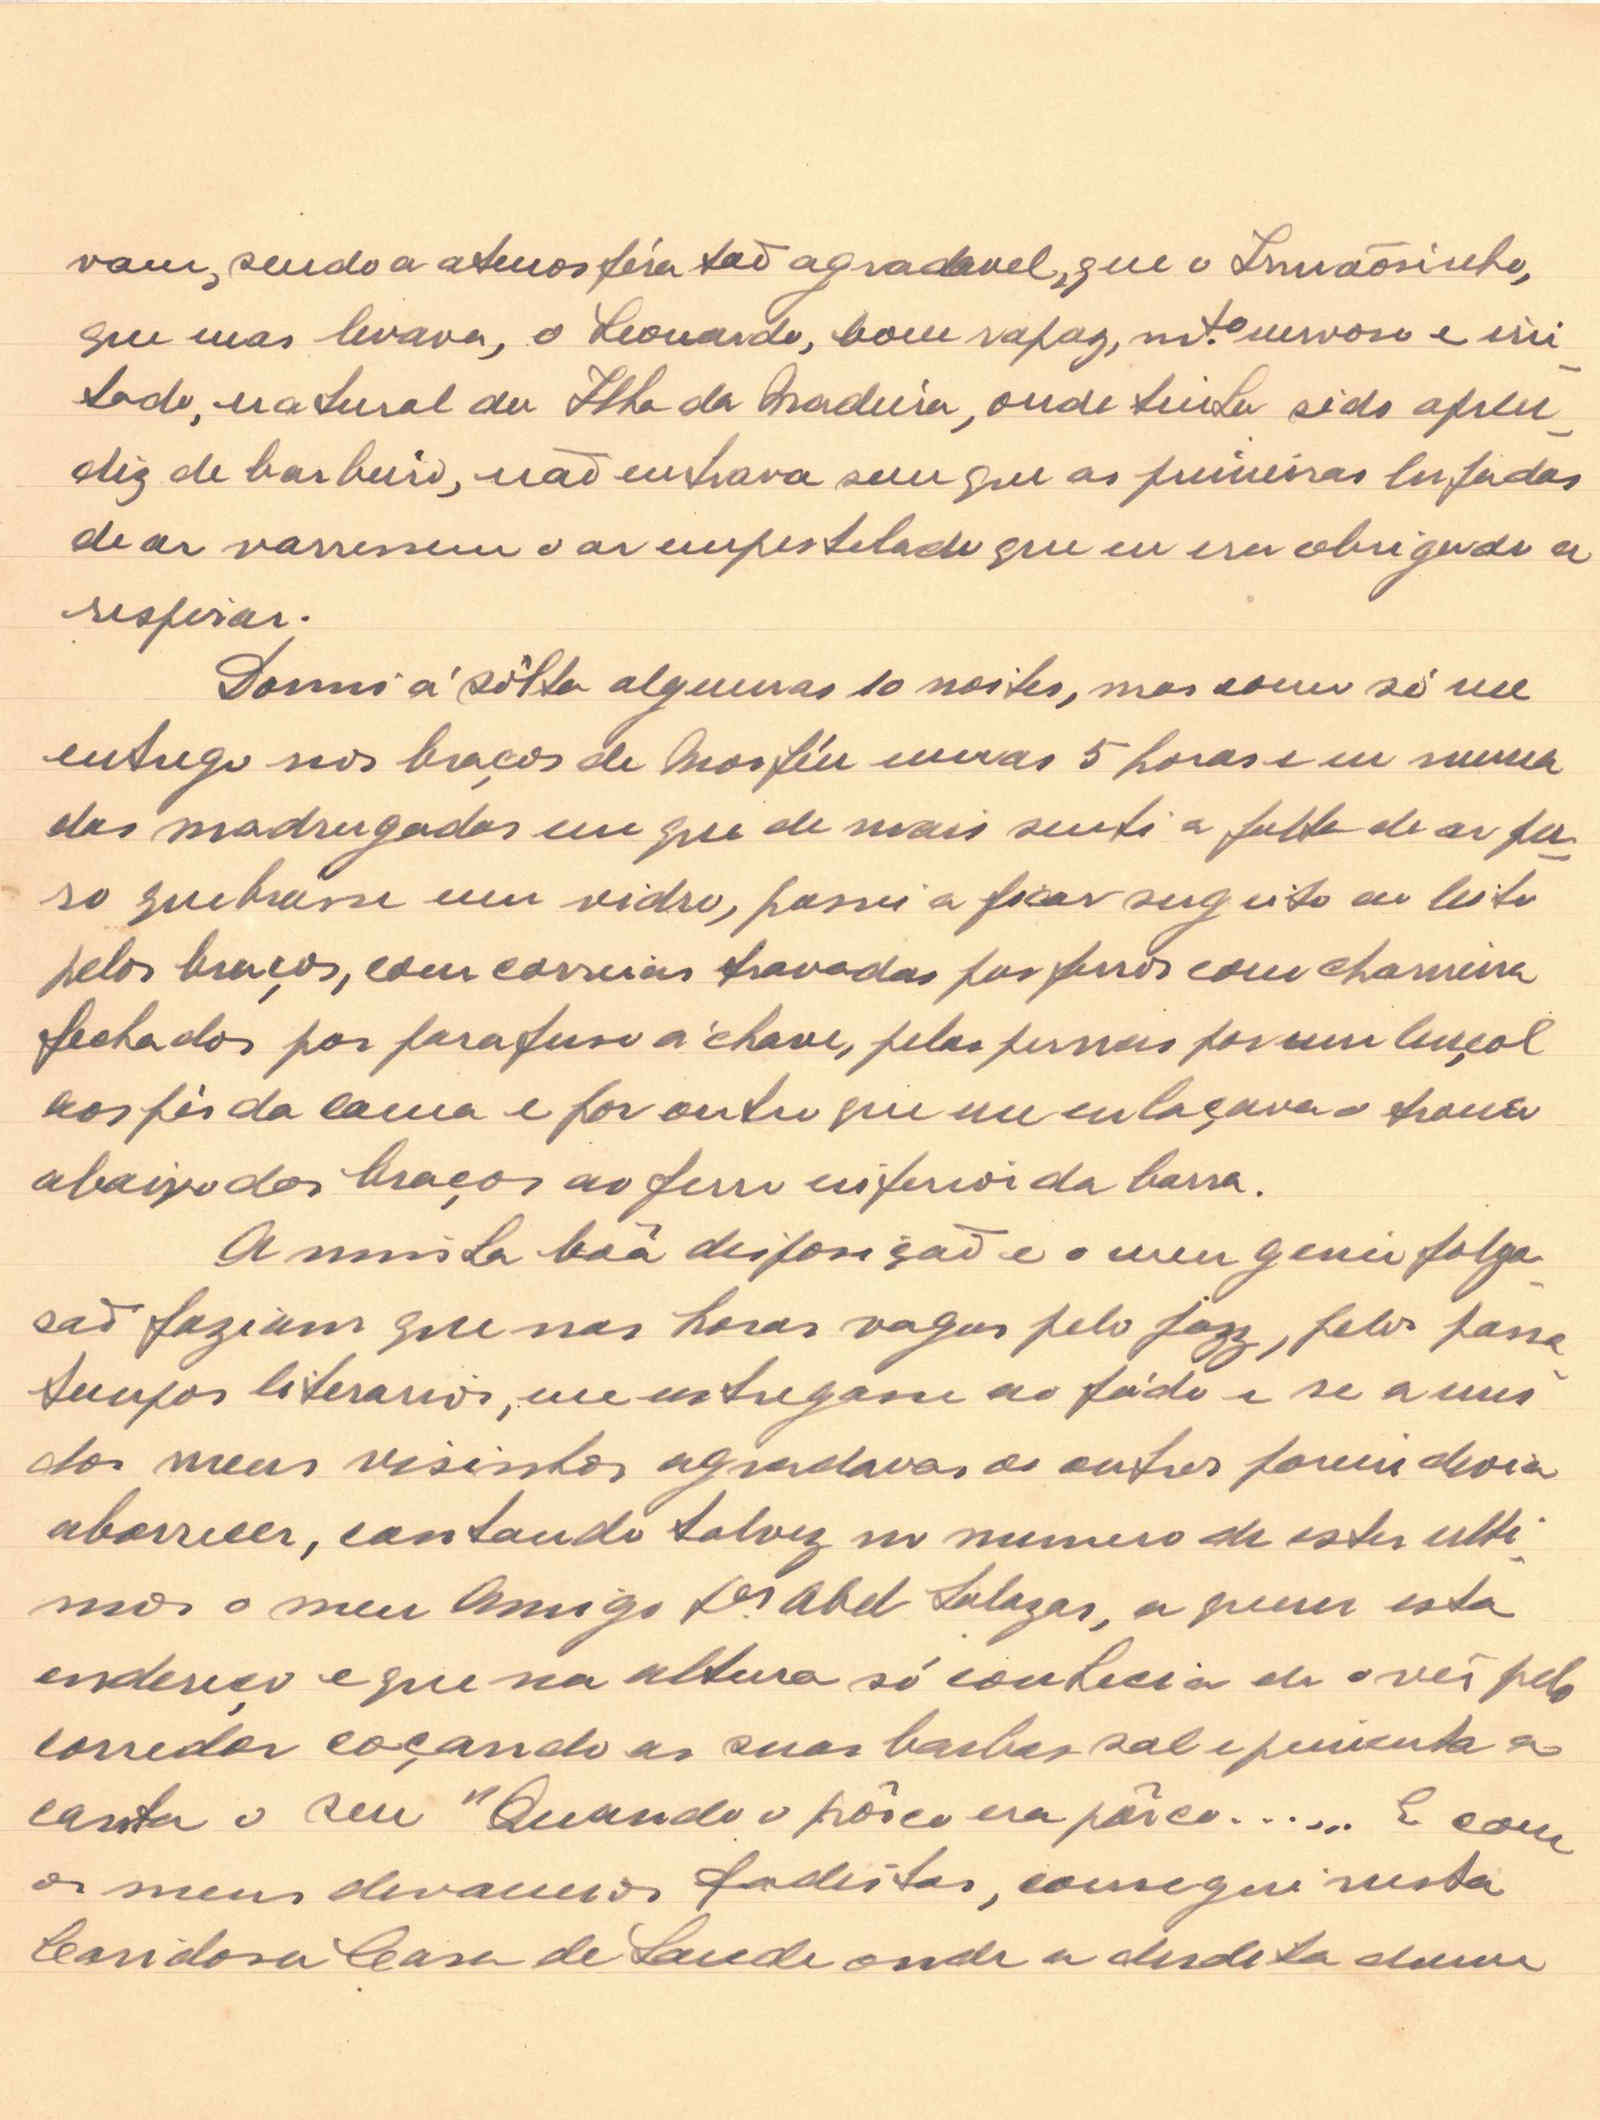 vam, sendo a atmosféra taõ agradavel, que o Irmaõsinho,
que mas levava, o Leonardo, bom rapaz, mt.º nervoso e irri-
tado, natural da Ilha da Madeira, onde tinha sido apren-
diz de barbeiro, naõ entrava sem que as primeiras lufadas
de ar varressem o ar empestelado que eu era obrigado a
respirar.
Dormi á sôlta algumas 10 noites, mas como só me
entrego nos braços de Morféu umas 5 horas e eu numa
das madrugadas em que de mais senti a falta de ar pu-
ro quebrasse um vidro, passei a ficar sugeito ao leito
pelos braços, com correias travadas por ferros com charneira
fechados por parafuso á chave, pelas pernas por um lençol
aos pés da cama e por outro que me enlaçava o tronco
abaixo dos braços ao ferro inferior da barra.
A minha boâ disposiçaõ e o meu genio folga-
saõ faziam que nas horas vagas pelo jazz, pelos passa-
tempos literarios, me entregasse ao fádo e se a uns
dos meus visinhos agradavas os outros porem devia
aborrecer, contando talvez no numero de estes ulti-
mos o meu Amigo Dor Abel Salazar, a quem esta
endereço e que na altura só conhecia de o vêr pelo
corredor coçando as suas barbas sal e pimenta a
canta o seu "Quando o pôrco era pôrco...... E com
os meus devaneios fadistas, consegui nesta
Caridosa Casa de Saude onde a desdita